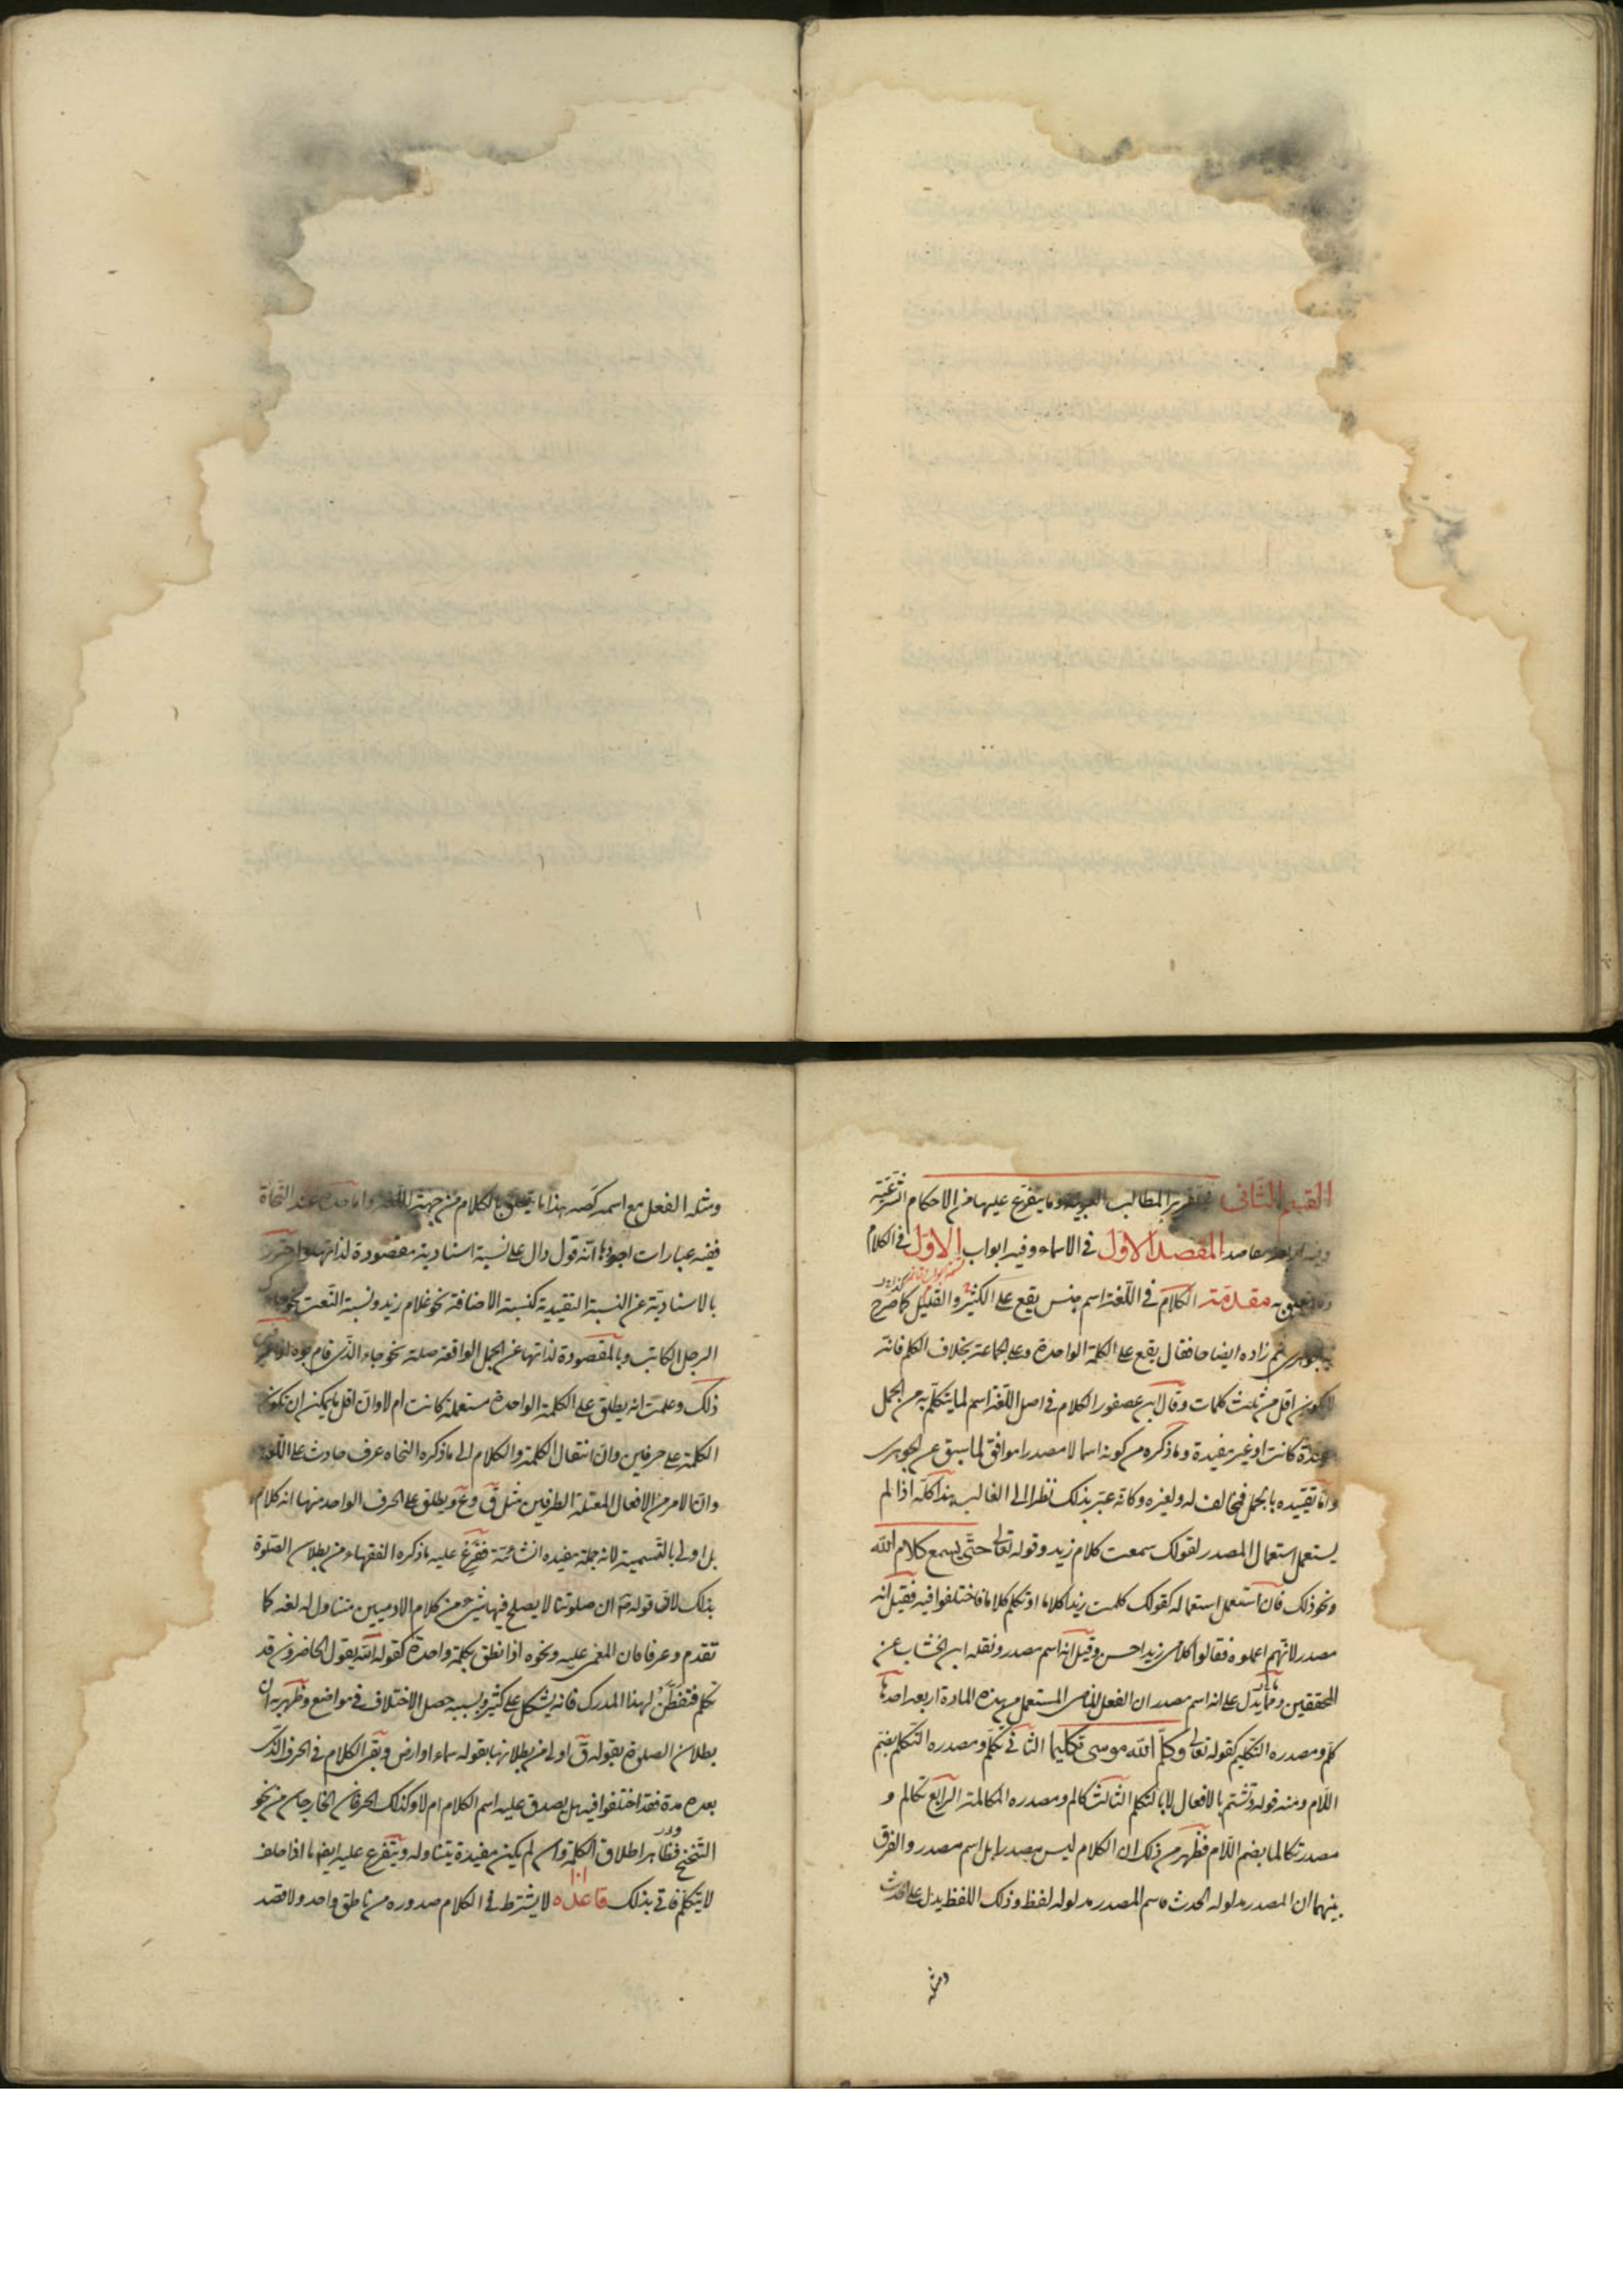 القسم الثاني في تقرير المطالب العربية وما يتفرع عليها من الاحكام الشرعية
وفيه اربعة مقاصد المقصد الاول في الاسماء وفيه ابواب الاول في الكلام
وما يتعلق به مقدمة الكلام في اللغة اسم جنس يقع على الكثير والقليل كما صرح
ثم زاده ايضاحا فقال يقع على الكلمة الواحدة وعلى الجماعة بخلاف الكلم فانه
لا يكون اقل من ثلث كلمات وقال ابن عصفور الكلام في اصل اللغة اسم لما يتكلم به من الجمل
مفيدة كانت او غير مفيدة وما ذكره من كونه اسما لا مصدرا موافق لما سبق عن الجوهرى
واما تقييده بالجمل فمخالف له ولغيره وكانه عبر بذلك نظرا الى الغالب هذا كله اذا لم
يستعمل استعمال المصدر لقولك سمعت كلام زيد وقوله تعالى حتى يسمع كلام الله
ونحو ذلك فان استعمل استعماله كقولك كلمت زيدا كلاما او تكلم كلاما فاختلفوا فيه فقيل انه
مصدر لانهم اعملوه فقالوا كلامى زيدا حسن وقيل انه اسم مصدر ونقله ابن الخشاب عن
المحققين ومما يدل على انه اسم مصدر ان الفعل الماضى المستعمل من هذه المادة اربعة احدها
كلم ومصدره التكليم كقوله تعالى وكلم الله موسى تكليما الثانى تكلم ومصدره التكلم بضم
اللام ومنه قوله وتشتم بالافعال لا بالتكلم الثالث كالم ومصدره المكالمة الرابع تكالم و
مصدره تكالما بضم اللام فظهر من ذلك ان الكلام ليس مصدرا بل اسم مصدر والفرق
بينهما ان المصدر مدلوله الحدث واسم المصدر مدلوله لفظ وذلك اللفظ يدل على الحدث
ومثله
ومثله الفعل مع اسمه كصه هذا ما يتعلق بالكلام من جهة اللغة واما حده عند النحاة
ففيه عبارات اجودها انه قول دال على نسبة اسنادية مقصودة لذاتها واحترز
بالاسنادية عن النسبة التقييدية كنسبة الاضافة نحو غلام زيد ونسبة النعت نحو
الرجل الكاتب وبالمقصودة لذاتها عن الجمل الواقعة صلة نحو جاء الذى قام ابوه
ذلك وعلمت انه يطلق على الكلمة الواحدة مستعملة كانت ام لا وان اقل ما يمكن ان تكون
الكلمة على حرفين وان انتقال الكلمة والكلام الى ما ذكره النحاه عرف حادث على اللغة
وان الامر من الافعال المعتلة الطرفين مثل ق وع ويطلق على الحرف الواحد منها انه كلام
بل اولى بالتسمية لانه جملة مفيده انشائية ففرع عليه ما ذكره الفقهاء من بطلان الصلوة
بذلك لان قوله ان صلوتنا لا يصلح فيها شىء من كلام الادميين متناول له لغة كما
تقدم وعرفا فان المغمى عليه ونحوه اذا نطق بكلمة واحدة كقوله الله يقول الحاضرون قد
تكلم فتفطن لهذا المدرك فانه يشكل على كثير وبسببه حصل الاختلاف في مواضع وظهر به ان
بطلان الصلوة بقوله ق اولى من بطلانها بقوله سماء او ارض وبقى الكلام في الحرف الذى
بعده مدة فقد اختلفوا فيه هل يصدق عليه اسم الكلام ام لا وكذلك الحرفان الخارجان من نحو
التنحنح فظاهر اطلاق الكلمة وان لم يكن مفيدة يتناوله ويتفرع عليه ايضا ما اذا حلف
لا يتكلم فاتى بذلك قاعده لا يشترط في الكلام صدوره من ناطق واحد ولا قصد